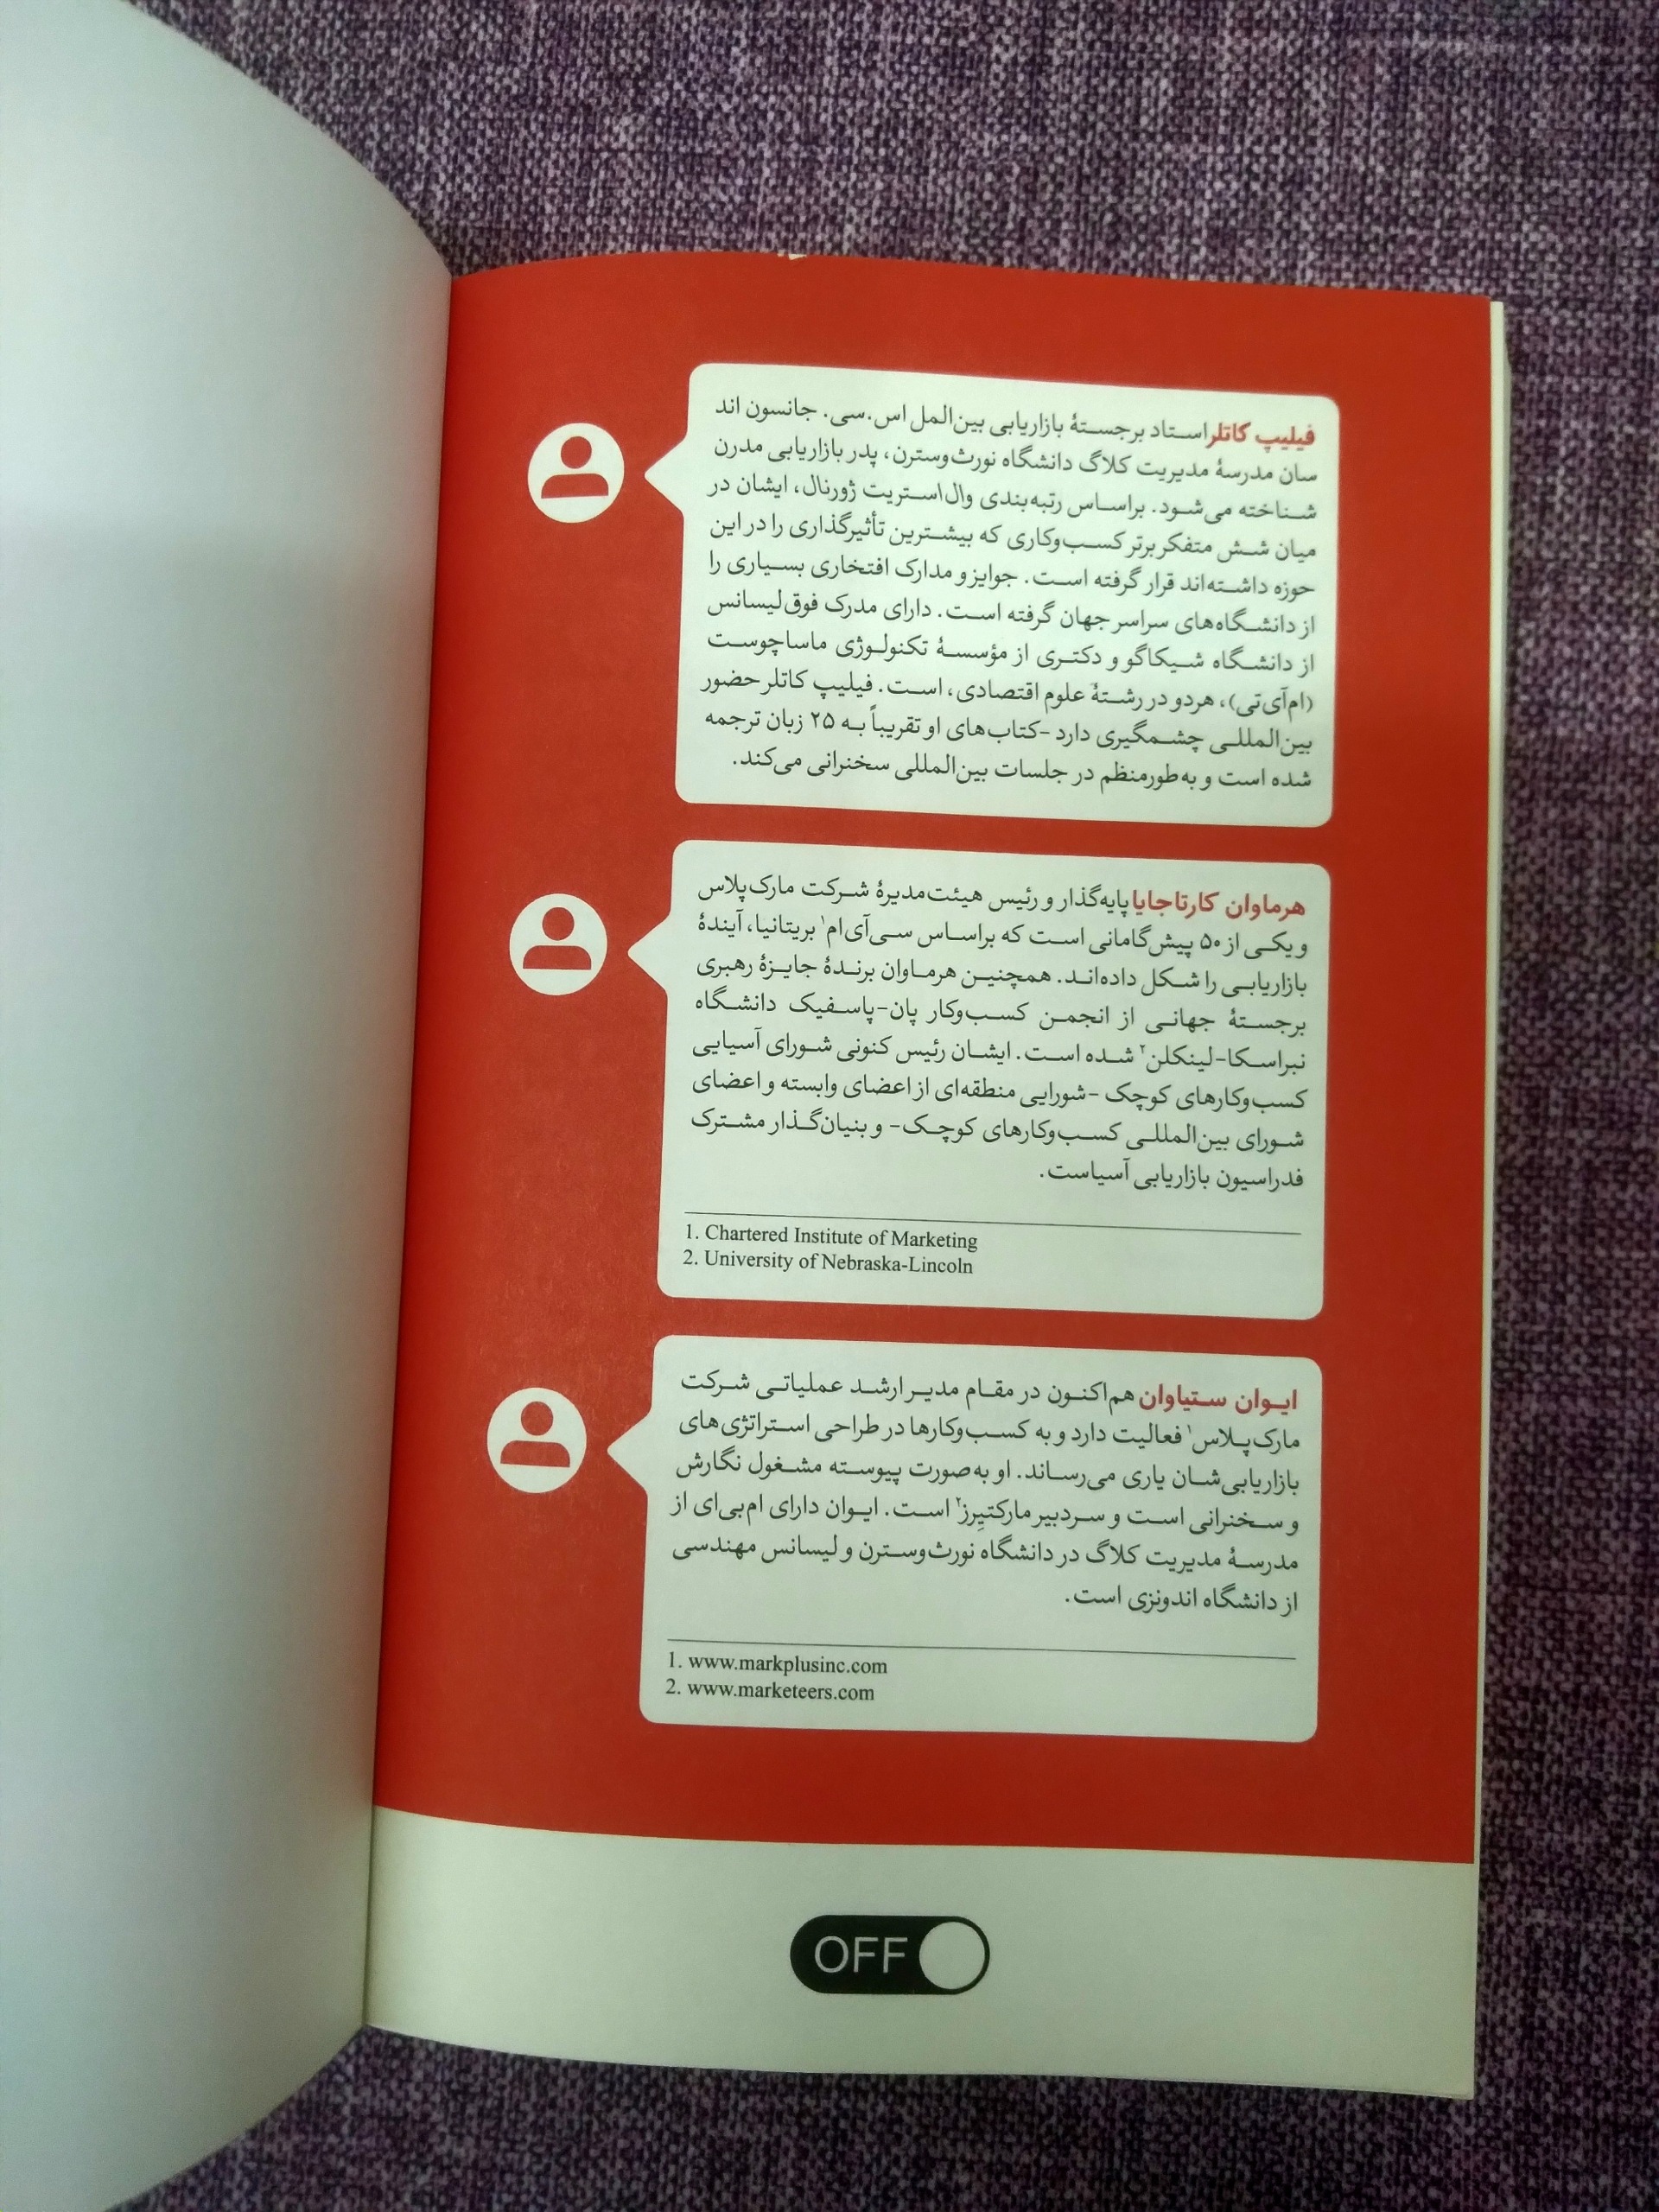 فیلیپ کاتلر استاد برجستهٔ بازاریابی بین‌الملل اس.سی. جانسون اند
سان مدرسهٔ مدیریت کلاگ دانشگاه نورث‌وسترن، پدر بازاریابی مدرن
شناخته می‌شود. براساس رتبه‌بندی وال‌استریت ژورنال، ایشان در
میان شش متفکر برتر کسب‌وکاری که بیشترین تأثیرگذاری را در این
حوزه داشته‌اند قرار گرفته است. جوایز و مدارک افتخاری بسیاری را
از دانشگاه‌های سراسر جهان گرفته است. دارای مدرک فوق‌لیسانس
از دانشگاه شیکاگو و دکتری از مؤسسهٔ تکنولوژی ماساچوست
(ام‌آی‌تی)، هردو در رشتهٔ علوم اقتصادی، است. فیلیپ کاتلر حضور
بین‌المللی چشمگیری دارد -کتاب‌های او تقریباً به ۲۵ زبان ترجمه
شده است و به‌طورمنظم در جلسات بین‌المللی سخنرانی می‌کند.
هرماوان کارتاجایا پایه‌گذار و رئیس هیئت‌مدیرهٔ شرکت مارک‌پلاس
و یکی از ۵۰ پیش‌گامانی است که براساس سی‌آی‌ام۱ بریتانیا، آیندهٔ
بازاریابی را شکل داده‌اند. همچنین هرماوان برندهٔ جایزهٔ رهبری
برجستهٔ جهانی از انجمن کسب‌وکار پان-پاسفیک دانشگاه
نبراسکا-لینکلن۲ شده است. ایشان رئیس کنونی شورای آسیایی
کسب‌وکارهای کوچک -شورایی منطقه‌ای از اعضای وابسته و اعضای
شورای بین‌المللی کسب‌وکارهای کوچک- و بنیان‌گذار مشترک
فدراسیون بازاریابی آسیاست.
1. Chartered Institute of Marketing
2. University of Nebraska-Lincoln
ایوان ستیاوان هم‌اکنون در مقام مدیر ارشد عملیاتی شرکت
مارک‌پلاس۱ فعالیت دارد و به کسب‌وکارها در طراحی استراتژی‌های
بازاریابی‌شان یاری می‌رساند. او به‌صورت پیوسته مشغول نگارش
و سخنرانی است و سردبیر مارکتیِرز۲ است. ایوان دارای ام‌بی‌ای از
مدرسهٔ مدیریت کلاگ در دانشگاه نورث‌وسترن و لیسانس مهندسی
از دانشگاه اندونزی است.
1. www.markplusinc.com
2. www.marketeers.com
OFF